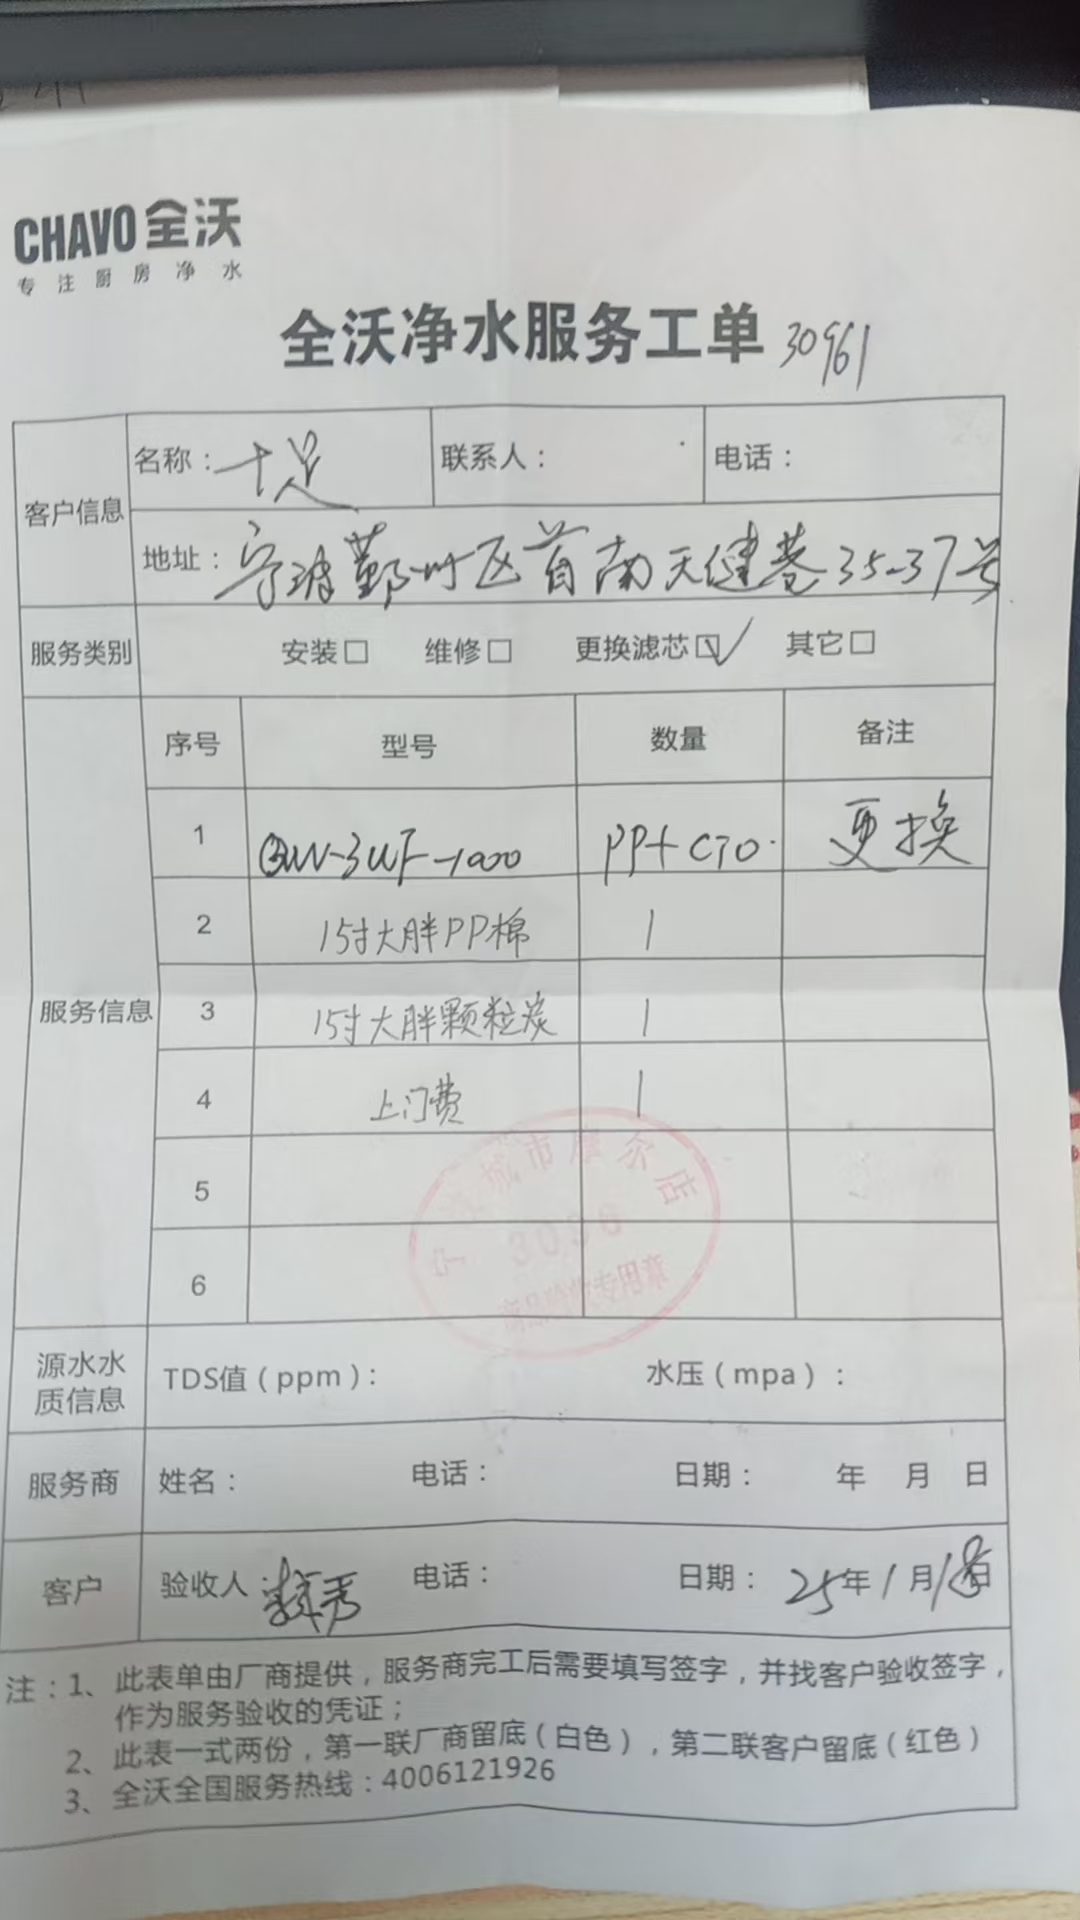 CHAVO全沃
专注厨房净水
全沃净水服务工单 30961
客户信息
名称：十足 联系人： 电话：
地址：宁波鄞州区首南天健巷35-37号
服务类别 安装□ 维修□ 更换滤芯☑ 其它□
服务信息
序号 型号 数量 备注
1 QW-3UF-1000 PP+CTO 更换
2 15寸大胖PP棉 1
3 15寸大胖颗粒炭 1
4 上门费 1
5
6
商品验收专用章
源水水质信息 TDS值（ppm）： 水压（mpa）：
服务商 姓名： 电话： 日期： 年 月 日
客户 验收人： 电话： 日期：25年1月18日
注：1、此表单由厂商提供，服务商完工后需要填写签字，并找客户验收签字，
作为服务验收的凭证；
2、此表一式两份，第一联厂商留底（白色），第二联客户留底（红色）
3、全沃全国服务热线：4006121926